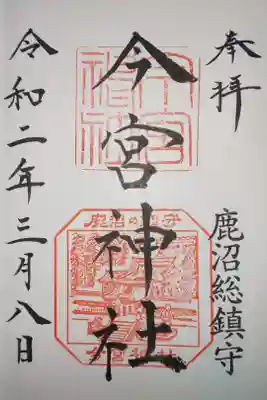 奉拝
鹿沼総鎮守
今宮神社
令和二年三月八日
今宮神社
鹿沼の鎮守
今宮神社